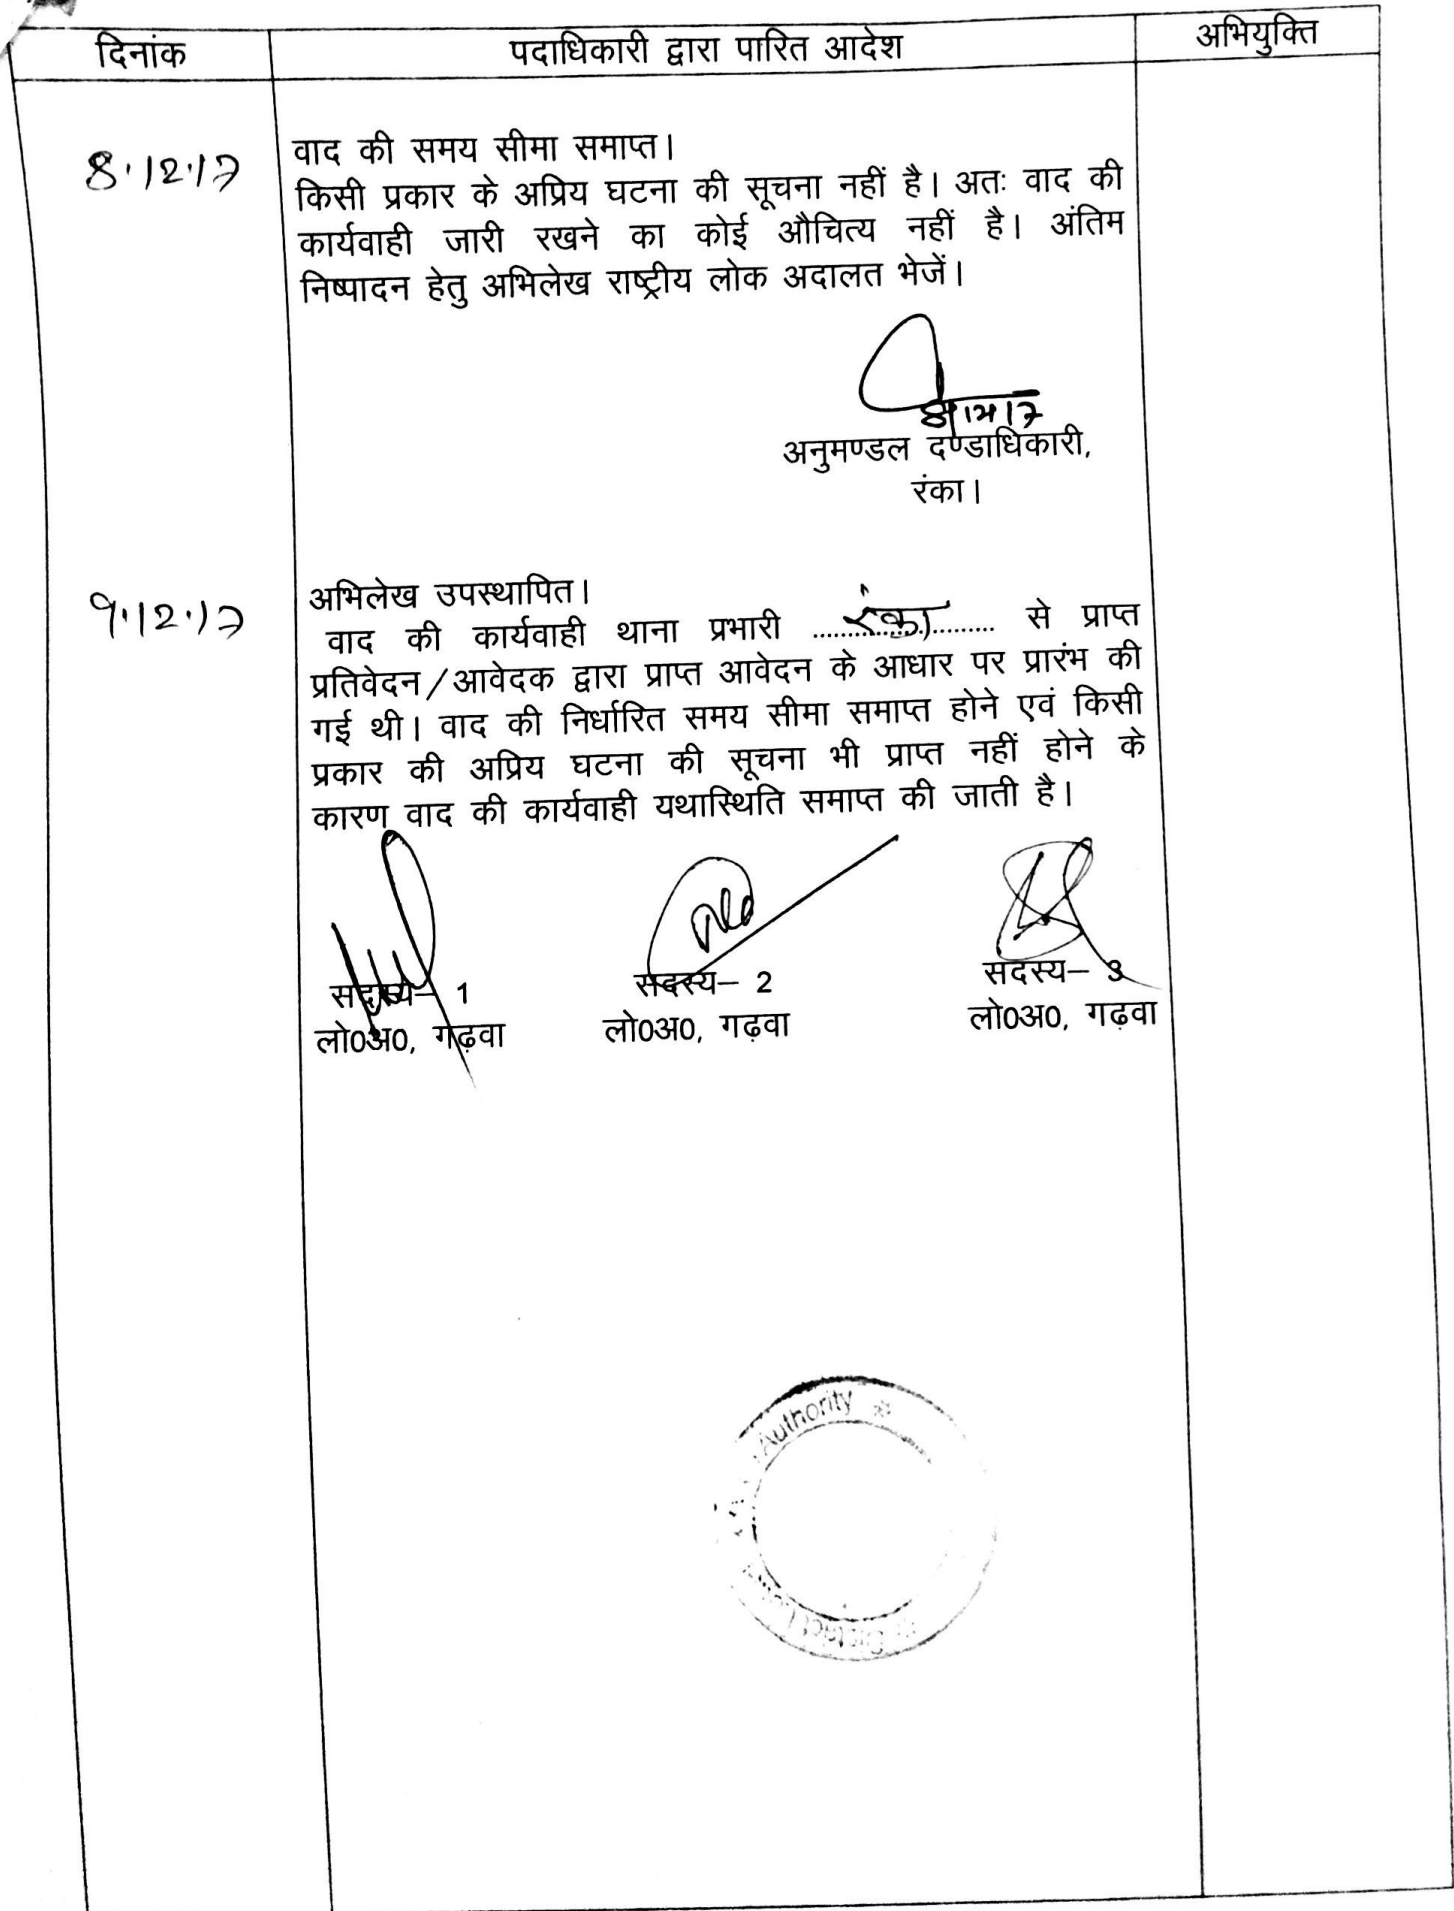 दिनांक पदाधिकारी द्वारा पारित आदेश अभियुक्ति
8.12.17
वाद की समय सीमा समाप्त।
किसी प्रकार के अप्रिय घटना की सूचना नहीं है। अतः वाद की
कार्यवाही जारी रखने का कोई औचित्य नहीं है। अंतिम
निष्पादन हेतु अभिलेख राष्ट्रीय लोक अदालत भेजें।
8/12/17
अनुमण्डल दण्डाधिकारी,
रंका।
9.12.17
अभिलेख उपस्थापित।
वाद की कार्यवाही थाना प्रभारी ....रंका.... से प्राप्त
प्रतिवेदन/आवेदक द्वारा प्राप्त आवेदन के आधार पर प्रारंभ की
गई थी। वाद की निर्धारित समय सीमा समाप्त होने एवं किसी
प्रकार की अप्रिय घटना की सूचना भी प्राप्त नहीं होने के
कारण वाद की कार्यवाही यथास्थिति समाप्त की जाती है।
सदस्य– 1 सदस्य– 2 सदस्य– 3
लो0अ0, गढ़वा लो0अ0, गढ़वा लो0अ0, गढ़वा
Authority